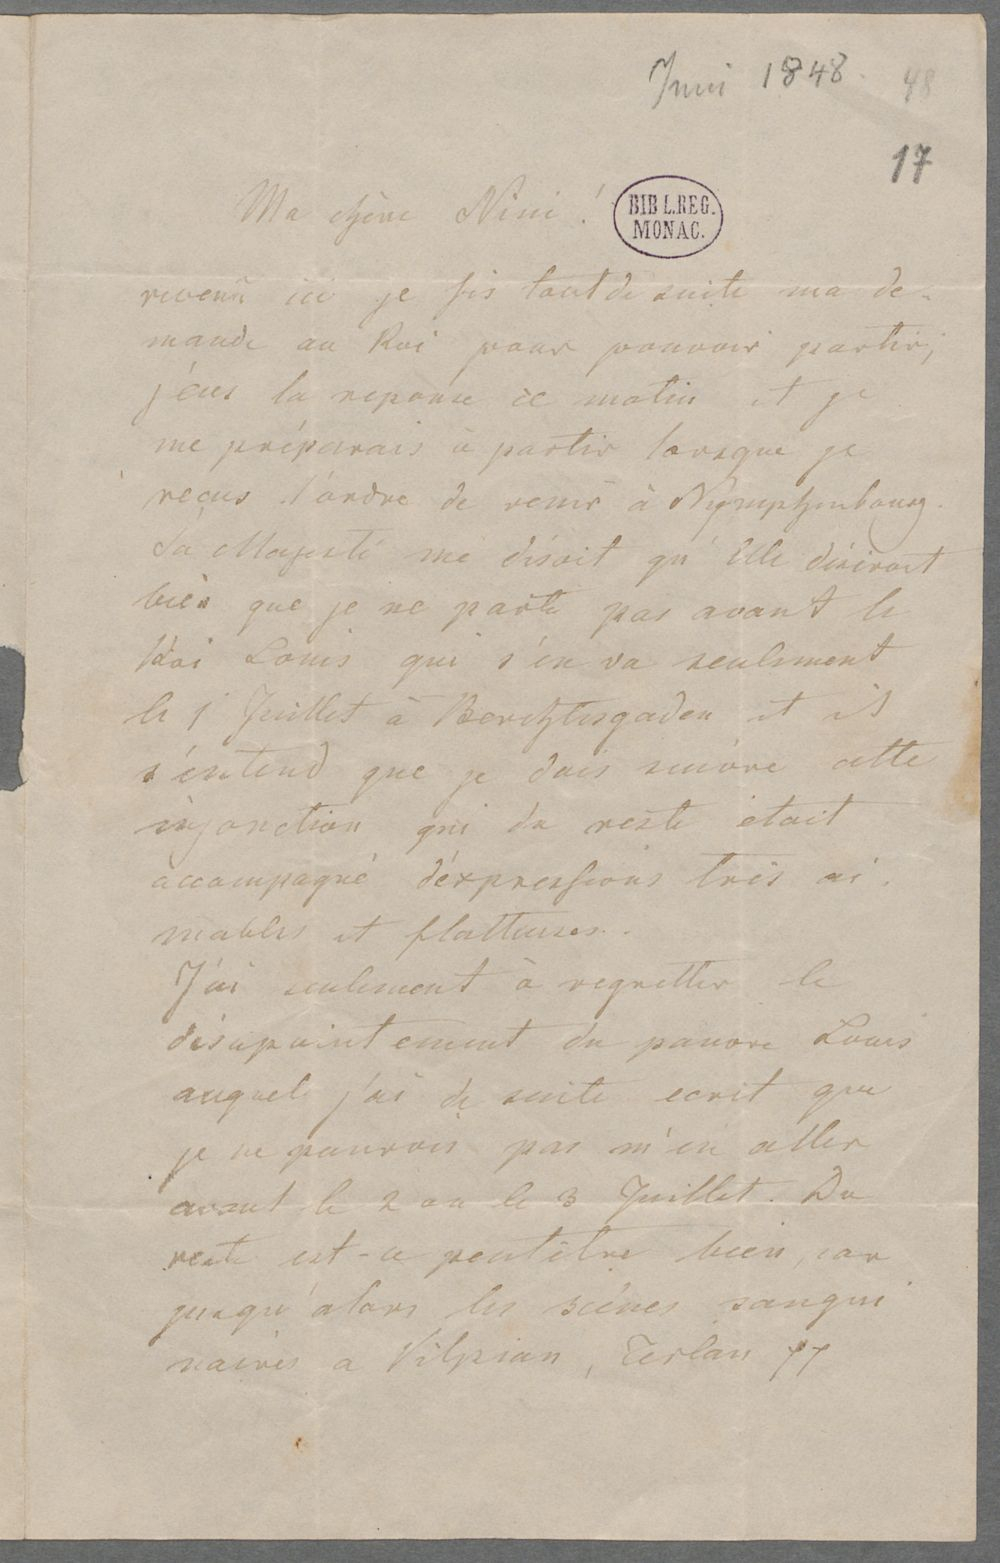 Juni 1848.
48
17
Ma chère Nini!
BIBL.REG.
MONAC.
revenu ici je fis tout de suite ma de-
mande au Roi pour pouvoir partir,
j'eus la reponse ce matin et je
me préparais à partir lorsque je
reçus l'ordre de venir à Nymphenbourg.
Sa Majesté me disoit qu'Elle désiroit
bien que je ne parte pas avant le
Roi Louis qui s'en va seulement
le 1 Juillet à Berchtesgaden et il
s'entend que je dois suivre cette
injonction qui du reste était
accompagné d'éxpressions très ai-
mables et flatteuses.
J'ai seulement à regretter le
désapointement du pauvre Louis
auquel j'ai de suite ecrit que
je ne pourrois pas m'en aller
avant le 2 ou le 3 Juillet. Du
reste est-ce peutêtre bien, car
jusqu'alors les scènes sangui
naires a Vilpian, Terlan